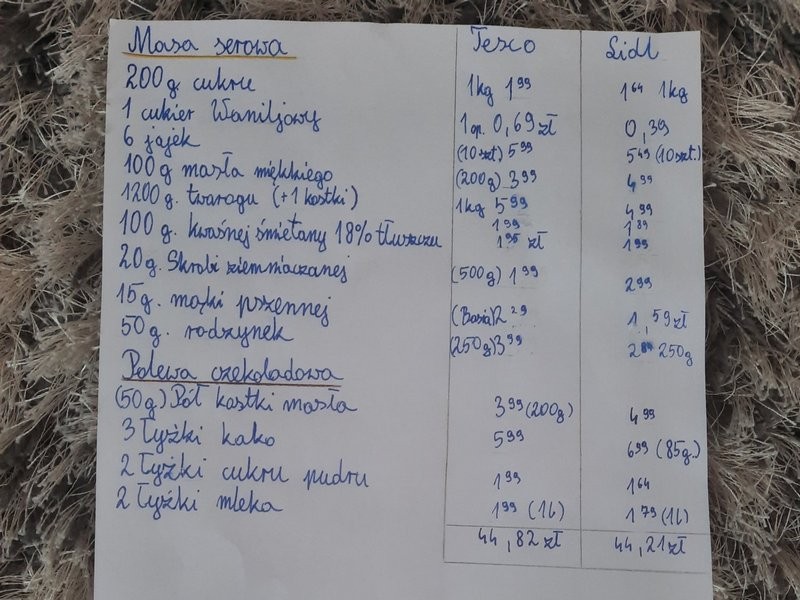 Masa serowa Tesco Lidl
200g. cukru 1kg 1⁹⁹ 1⁶⁴ 1kg
1 cukier Waniljowy 1 op. 0,69 zł 0,39
6 jajek (10szt) 5⁹⁹ 5⁴⁹ (10szt.)
100g masła miękkiego (200g) 3⁹⁹ 4⁹⁹
1200g. twarogu (+1 kostki) 1kg 5⁹⁹ 4⁹⁹
1⁹⁹ 1⁸⁹
100g. kwaśnej śmietany 18% tłuszczu 1⁹⁵ zł 1⁹⁹
20g. Skrobi ziemniaczanej (500g) 1⁹⁹ 2⁹⁹
15g. mąki pszennej (Basia) 2²⁹ 1,59zł
50g. rodzynek (250g) 3⁹⁹ 250g
Polewa czekoladowa
(50g) Pół kostki masła 3⁹⁹ (200g) 4⁹⁹
3 łyżki kako 5⁹⁹ 6⁹⁹ (85g.)
2 łyżki cukru pudru 1⁹⁹ 1⁶⁴
2 łyżki mleka 1⁹⁹ (1l) 1⁷⁹ (1l)
44,82 zł 44,21zł